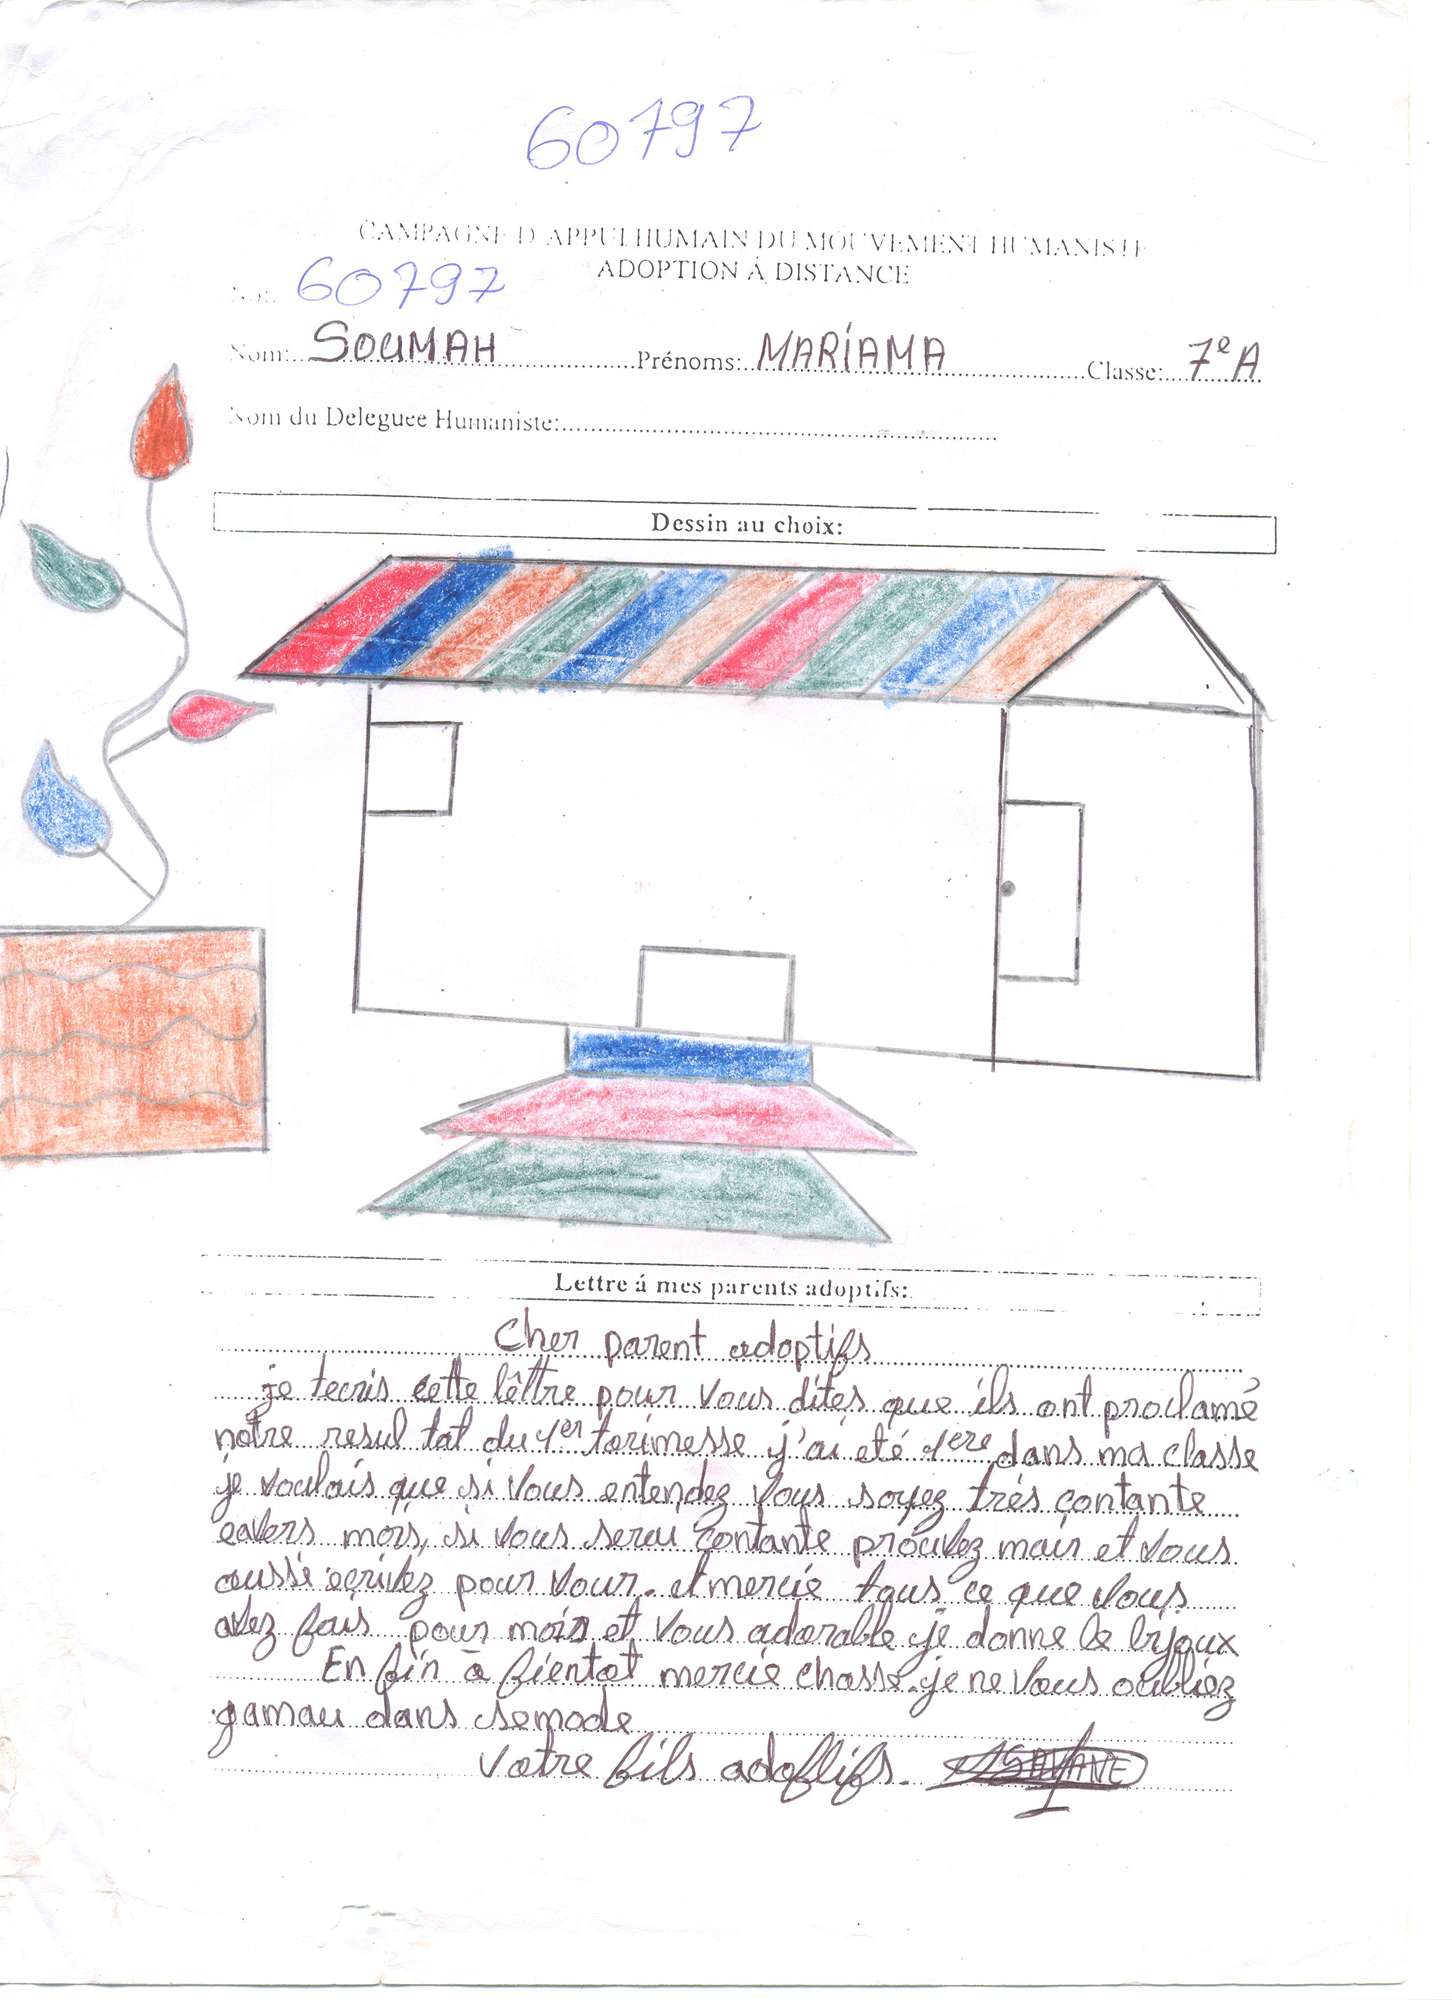 60797
CAMPAGNE D'APPUI HUMAIN DU MOUVEMENT HUMANISTE
ADOPTION À DISTANCE
No: 60797
Nom: SOUMAH Prénoms: MARIAMA Classe: 7e A
Nom du Deleguee Humaniste:
Dessin au choix:
Lettre á mes parents adoptifs:
Cher parent adoptifs
je tecris cette lêttre pour vous dites que ils ont proclamé
notre resul tat du 1er terimesse j'ai eté 1ere dans ma classe
je voulais que si vous entendez vous soyez trés contante
envers mois, si vous sereu contante prouvez mair et vous
aussi ecrivez pour vour. et mercie tous ce que vous
avez fais pour mois et vous adorable je donne le bijoux
En fin à bientot mercie chasse. je ne vous oubliez
gamau dans semode
votre fils adoflifs.